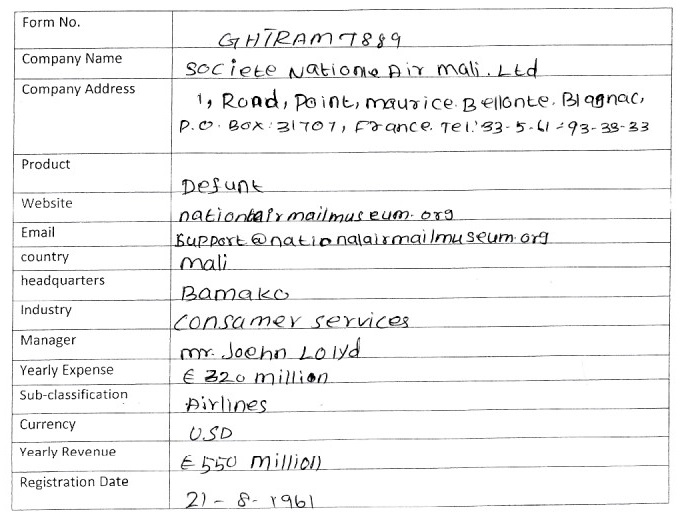 Form No. GHTRAM7889
Company Name Societe Nationa Air mali. Ltd
Company Address 1, Road, Point, maurice. Bellonte. Blagnac,
P.O. Box: 31707, France. Tel: 33-5-61-93-33-33
Product Defunt
Website nationalairmailmuseum.org
Email support@nationalairmailmuseum.org
country mali
headquarters Bamako
Industry consamer services
Manager mr. Joehn Lolyd
Yearly Expense € 320 million
Sub-classification Airlines
Currency USD
Yearly Revenue € 550 million
Registration Date 21-8-1961